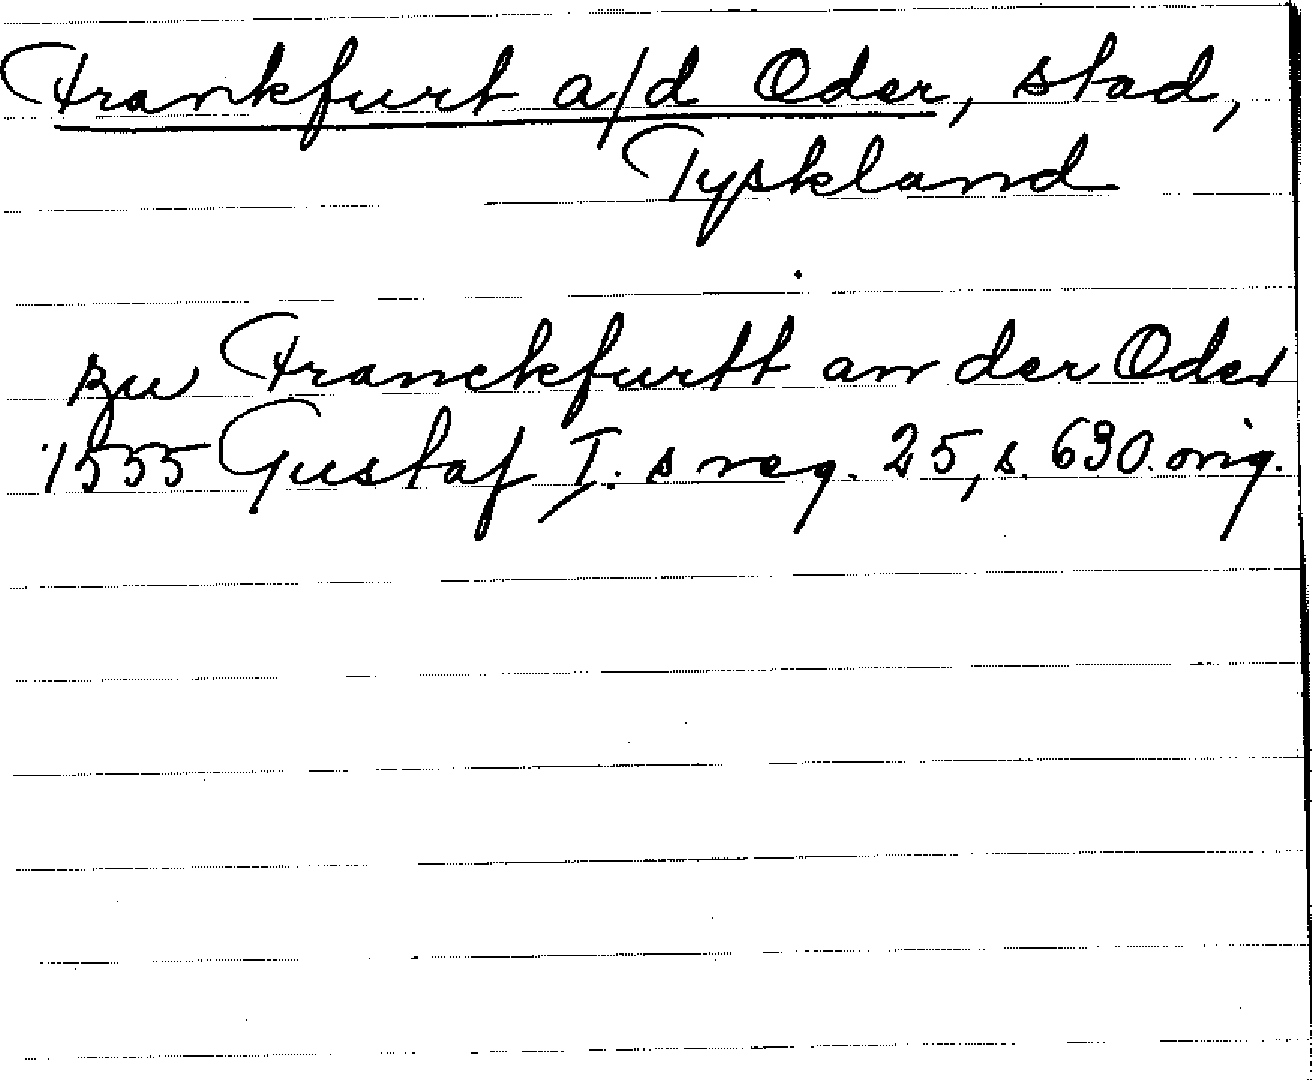 Frankfurt a/d Oder, stad,
Tyskland
zu Franckfurtt an der Oder
1555 Gustaf I:s reg. 25, s. 630. orig.